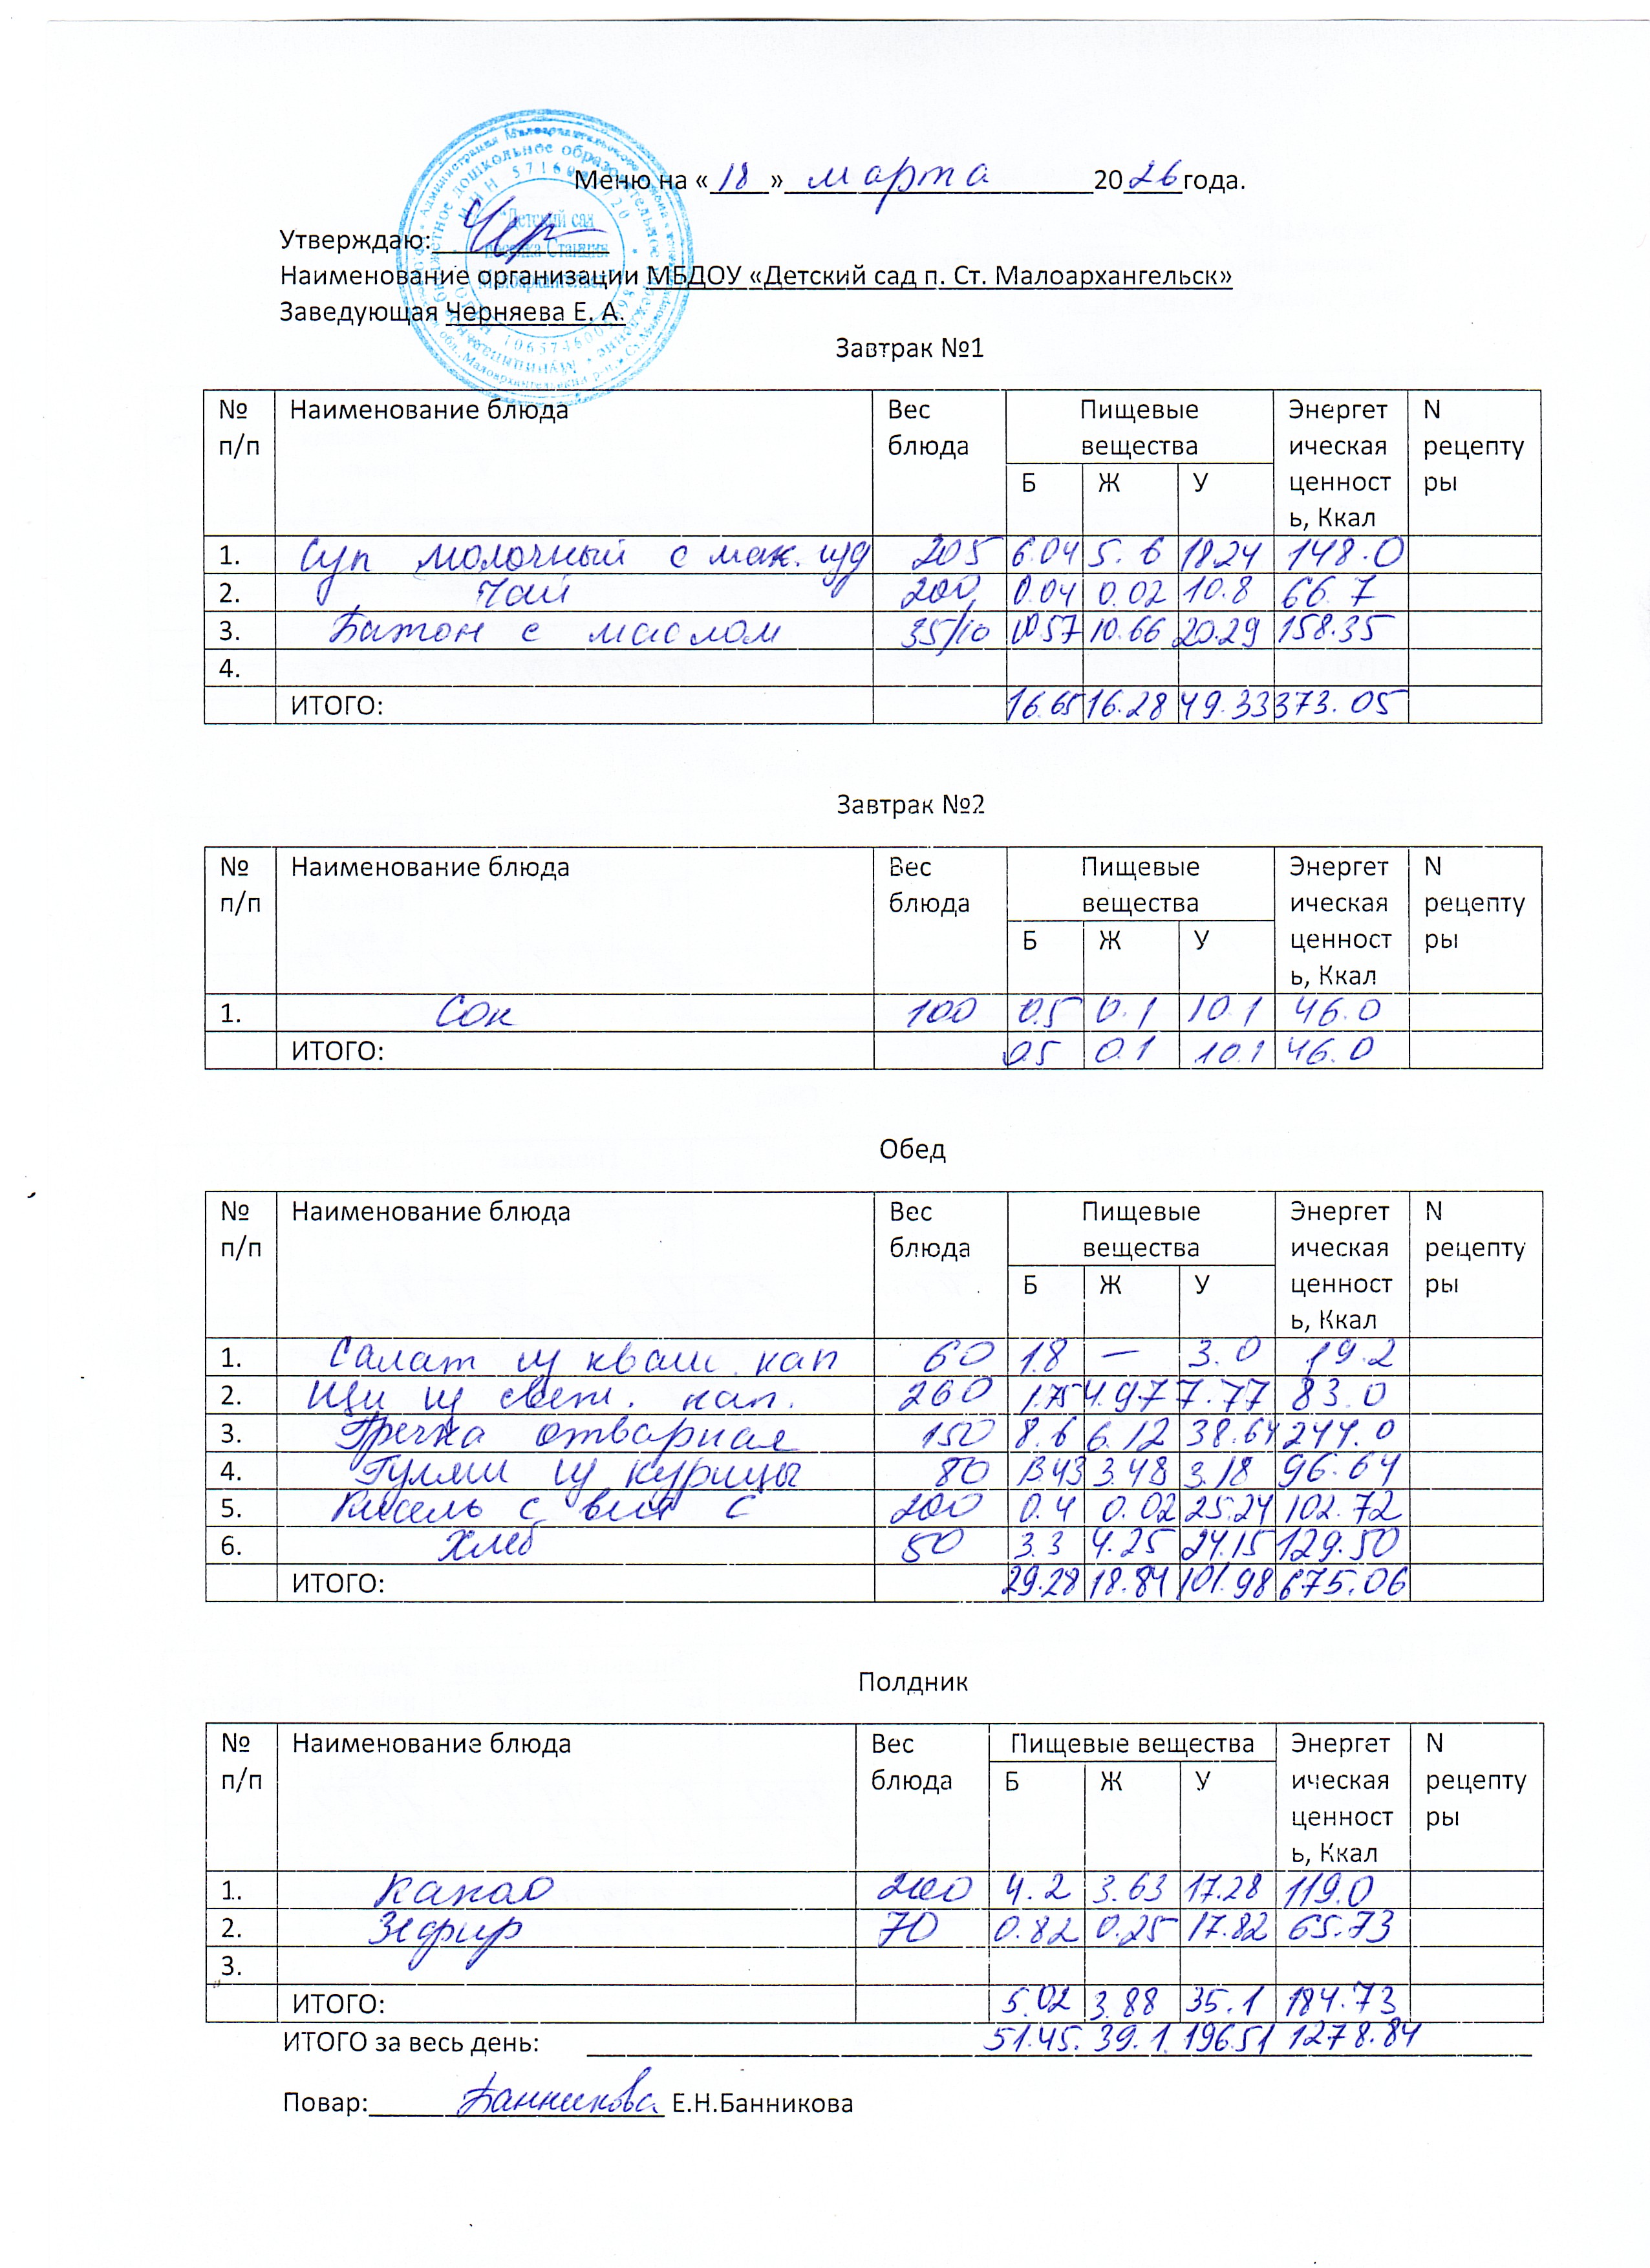 Меню на «18» марта 2026 года.
Утверждаю:
Наименование организации МБДОУ «Детский сад п. Ст. Малоархангельск»
Заведующая Черняева Е. А.
Завтрак №1
№ п/п Наименование блюда Вес блюда Пищевые вещества Б Ж У Энергетическая ценность, Ккал N рецептуры
1. Суп молочный с мак. изд 205 6.04 5.6 18.24 148.0
2. Чай 200 0.04 0.02 10.8 66.7
3. Батон с маслом 35/10 10.57 10.66 20.29 158.35
4.
ИТОГО: 16.65 16.28 49.33 373.05
Завтрак №2
№ п/п Наименование блюда Вес блюда Пищевые вещества Б Ж У Энергетическая ценность, Ккал N рецептуры
1. Сок 100 0.5 0.1 10.1 46.0
ИТОГО: 0.5 0.1 10.1 46.0
Обед
№ п/п Наименование блюда Вес блюда Пищевые вещества Б Ж У Энергетическая ценность, Ккал N рецептуры
1. Салат из кваш. кап 60 1.8 — 3.0 19.2
2. Щи из свеж. кап. 260 1.75 4.97 7.77 83.0
3. Гречка отварная 150 8.6 6.12 38.64 244.0
4. Гуляш из курицы 80 13.43 3.48 3.18 96.64
5. Кисель с вит С 200 0.4 0.02 25.24 102.72
6. Хлеб 50 3.3 4.25 24.15 129.50
ИТОГО: 29.28 18.84 101.98 675.06
Полдник
№ п/п Наименование блюда Вес блюда Пищевые вещества Б Ж У Энергетическая ценность, Ккал N рецептуры
1. Какао 200 4.2 3.63 17.28 119.0
2. Зефир 70 0.82 0.25 17.82 65.73
3.
ИТОГО: 5.02 3.88 35.1 184.73
ИТОГО за весь день: 51.45. 39.1. 196.51 1278.84
Повар: Банникова Е.Н.Банникова